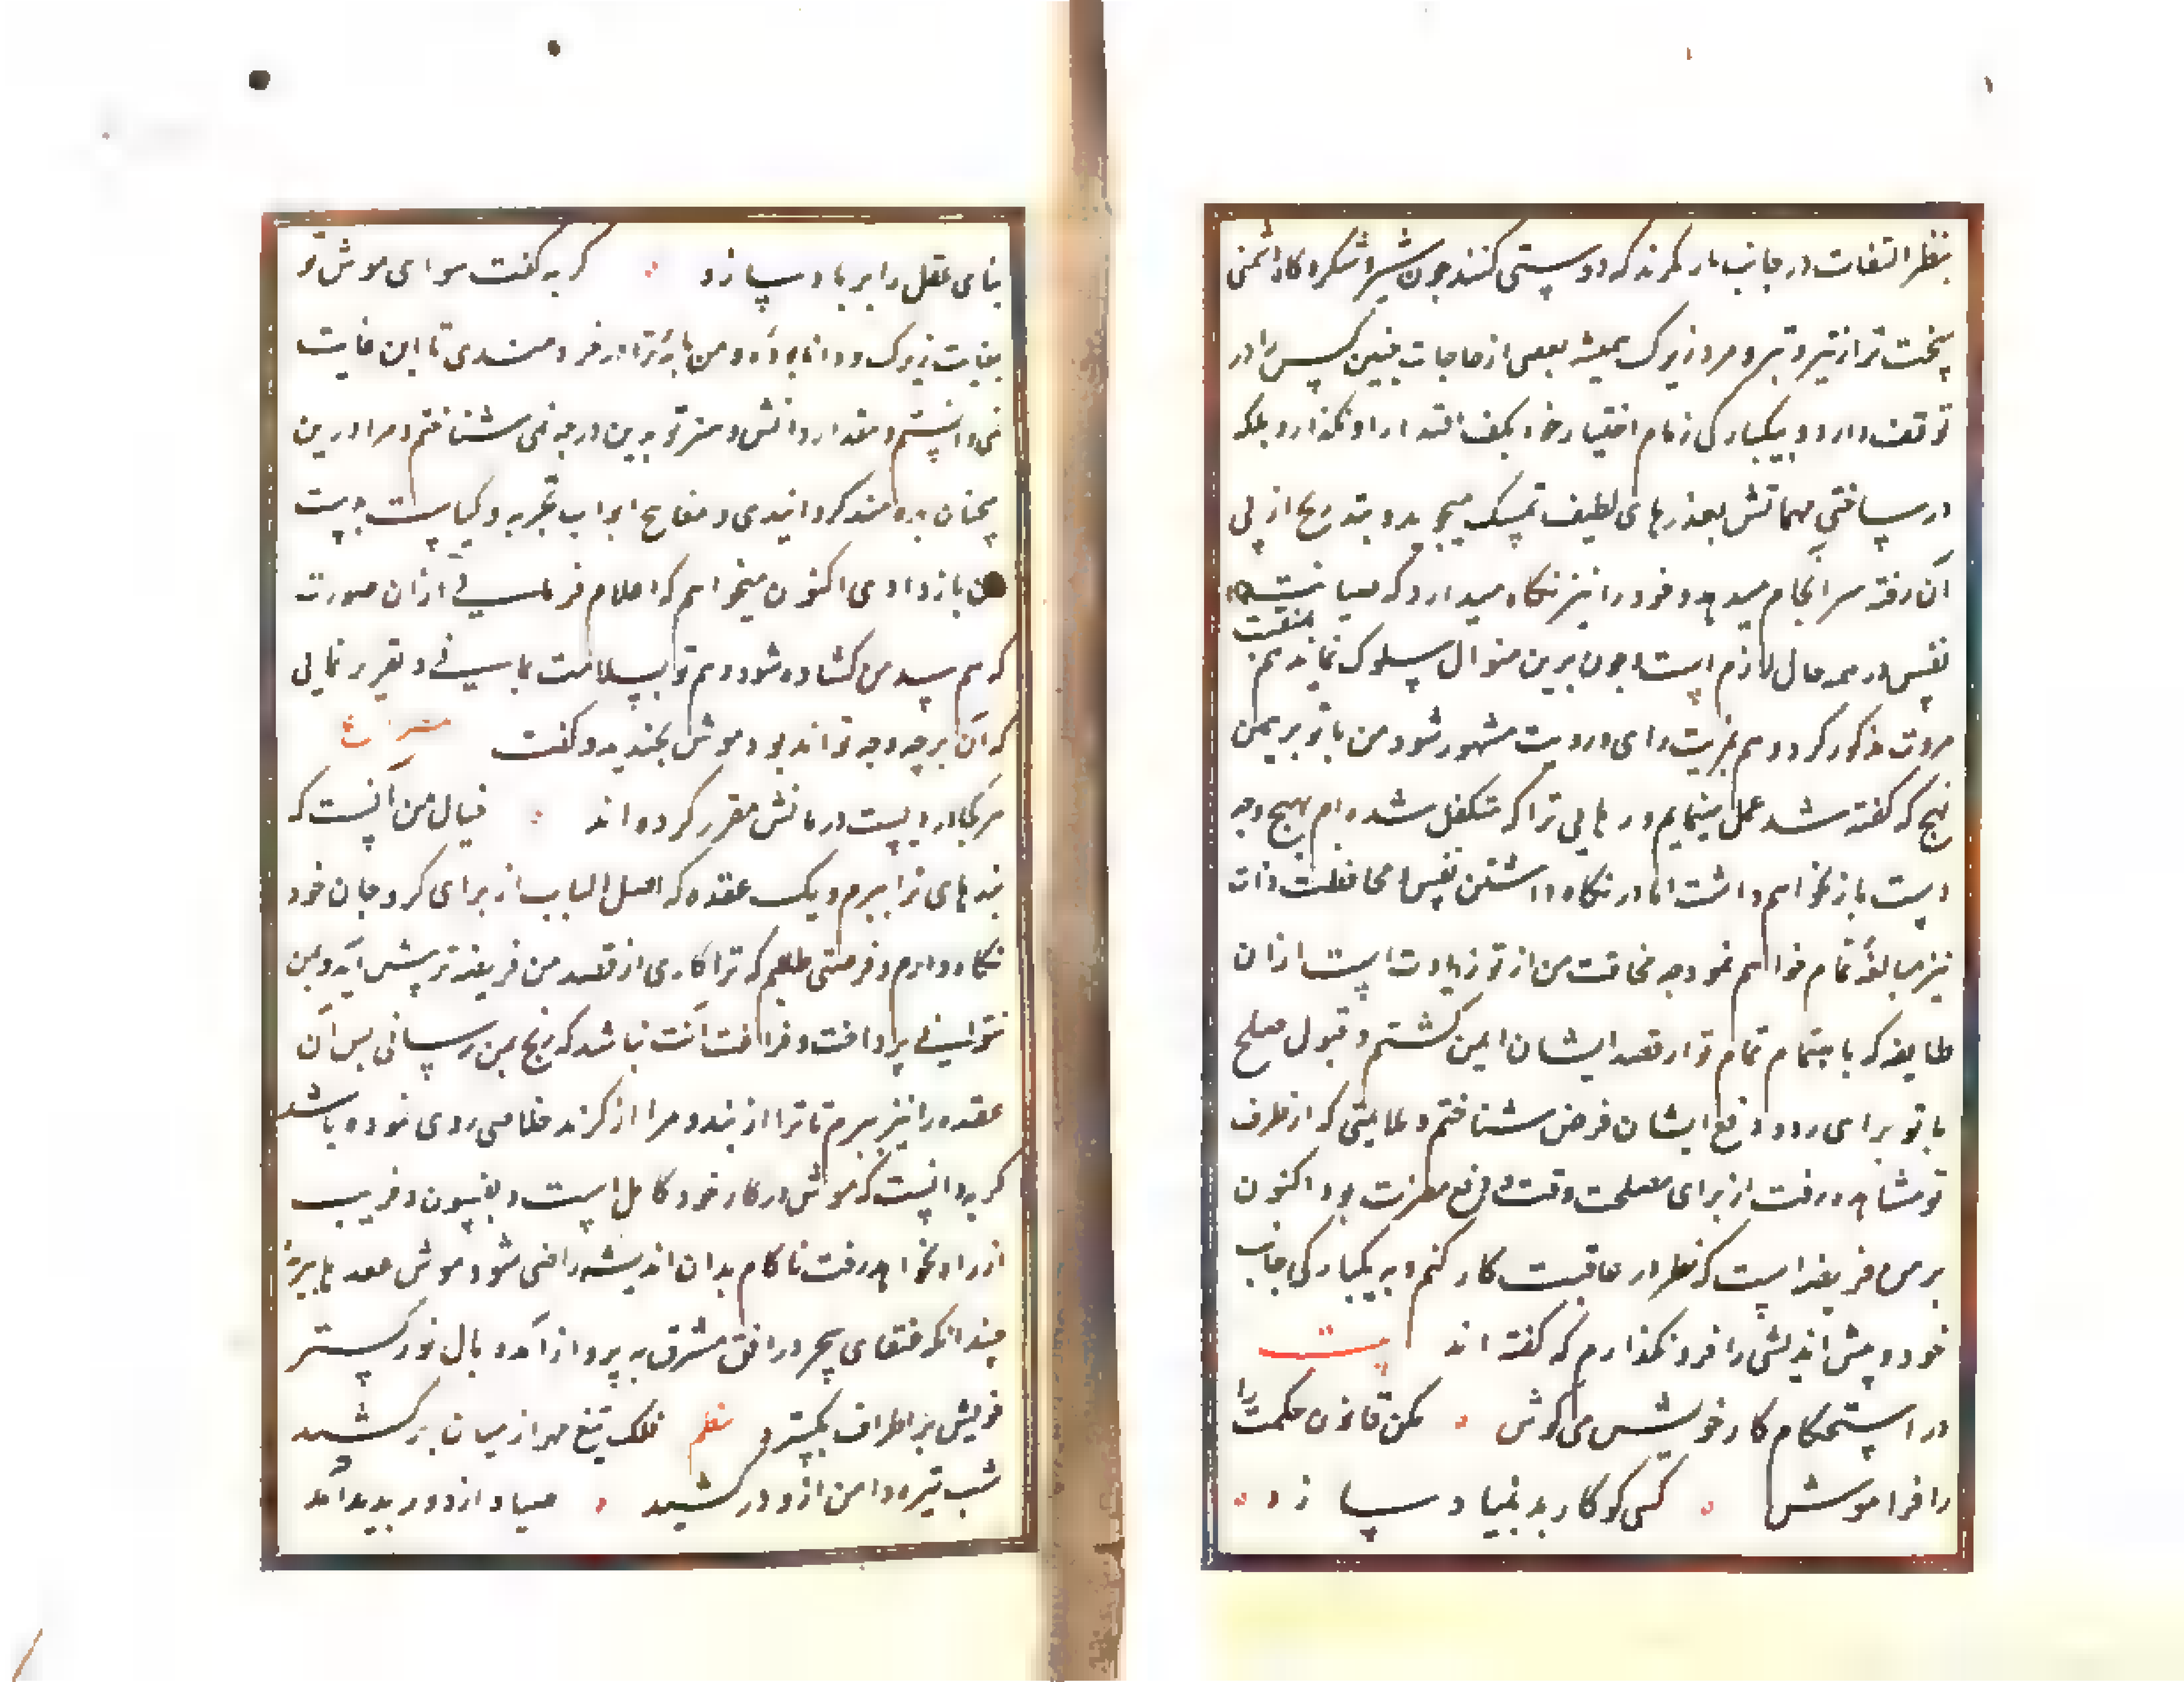 بنظر التفات در جانب یار نکرند که دوستی کنند چون شیر و شکر و کاه دشمنی
سخت تر از تیر و تبر و مرد زیرک همیشه بعضی از حاجات چنین کس را در
توقف دارد و بیکبارکی زمام اختیار خود بکف اقتدار او نکذارد بلکه
در ساختن مهماتش بعذرهای لطیف تمسک میجوید و بتدریج از پی
آن رفته سرانجام میدهد و خود را نیز نکاه میدارد که صیانت
نفس در همه حال لازم است و چون برین منوال سلوک نماید هم بمنقبت
مروت مذکور کردد هم بمزیت رای و رویت مشهور شود من با تو بر همین
نهج که کفته شد عمل مینمایم و رهایی ترا که متکفل شده ام بهیچ وجه
دست باز نخواهم داشت اما در نکاه داشتن نفس و محافظت ذات
نیز مبالغهٔ تمام خواهم نمود چه مخافت من از تو زیادت است از آن
طایفه که باهتمام تمام تو از قصد ایشان ایمن کشتم و قبول صلح
با تو برای رد و دفع ایشان فرض شناختم و ملایمتی که از طرف
تو مشاهده رفت از برای مصلحت وقت و دفع مضرت بود اکنون
بر من فریضه است که نظر در عاقبت کار کنم و به یکبارکی جانب
خود و پیش اندیشی را فرو نکذارم که کفته اند بیت
در استحکام کار خویش می کوش مکن قانون حکمت را
را فراموش کسی کو کار بد بنیاد سازد
بنای عقل را بر باد سازد کربه کفت ای موش تو
بغایت زیرک و دانا بوده و من پایهٔ ترا در خردمندی تا این غایت
نمی دانستم و مقدار دانش و هنر تو بدین درجه نمی شناختم و مرا درین
سخنان بهره مند کردانیدی و مفاتیح ابواب تجربه و کیاست بدست
من باز دادی اکنون میخواهم که اعلام فرمایی از آن صورت
که هم بند من کشاده شود و هم تو بسلامت بمانی و تقریر نمایی
که آن بر چه وجه تواند بود موش بخندید و کفت
هر کجا دردیست درمانش مقرر کرده اند خیال من آنست که
بندهای ترا ببرم و یک عقده که اصل الباب از برای کرو جان خود
نکاه دارم و فرصتی طلبم که ترا کاری از قصد من فریضه تر پیش آید و بمن
نتوانی پرداخت و فراغت آنت نباشد که رنج بمن رسانی پس آن
عقده را نیز ببرم تا ترا از بند و مرا از کزند خلاصی روی نموده باشد
کربه دانست که موش در کار خود کامل است و بفسون و فریب
از راه نخواهد رفت ناکام بدان اندیشه راضی شد و موش عقدها ببرید
چندانکه عنقای سحر در افق مشرق به پرواز آمد و بال نور کستر
خویش بر اطراف بکسترد نظم فلک تیغ مهر از میان برکشید
شب تیره دامن ازو درکشید صیاد از دور بدید آمد